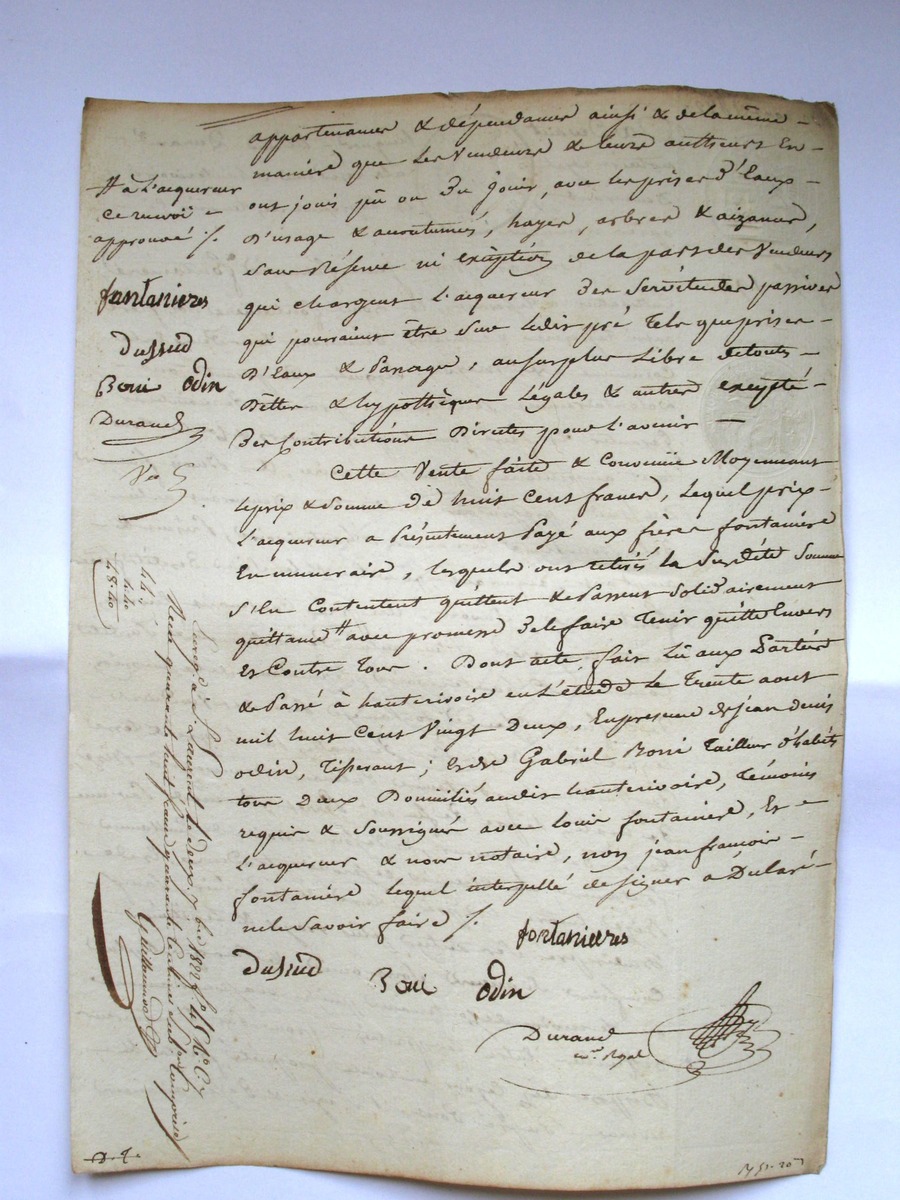 appartenances & dépendances ainsi & de la même -
manière que les Vendeurs & leurs autheurs En -
ont jouis pû ou Du Jouir, avec les prises D'Eaux -
D'usage & accoutumés, hayes, arbres & aizances,
sans Réserve ni exception de la part des Vendeurs
qui chargent L'acquereur Des Servitudes passives
qui pourraient être sur ledit pré Tels que prises -
D'Eaux & Passage, au surplus Libre de touts -
Dettes & hypothèques Légales & autres excepté -
Des Contributions Directes pour l'avenir -
Cette Vente faite & Convenüe Moyennant
le prix & Somme de huit Cent francs, Lequel prix -
L'acquereur a Présentement Payé aux frères fontanière
En numeraire, lesquels ont retirés la Susdite Somme
S'En Contentent quittent & Passent Solidairement
quittance # avec promesse De le faire Tenir quitte Envers
Et Contre Tous. Dont acte, fait lû aux Parties
& Passé à hauterivoire en L'étude le Trente aout
mil huit Cent Vingt Deux, En presence de jean denis
odin, Tisserant; Et de Gabriel Borri Tailleur d'habits
tous Deux Domiciliés audit hauterivoire, Témoins
requis & Soussignés avec louis fontanière, Et -
L'acquereur & nous notaire, non jean françois -
fontanière lequel interpellé de signer a Déclaré -
ne le Savoir faire /.
fontanieres
dusud
Bori odin
Durand
n.re Royal
# à L'acquereur
ce renvoi -
approuvé /.
fontanieres
Dusud
Bori odin
Durand
44 "
4.40
48.40
Enreg. à S.t Laurent le deux 7.bre 1822 f.o
Reçu quarante huit francs quarante centimes
D. T.